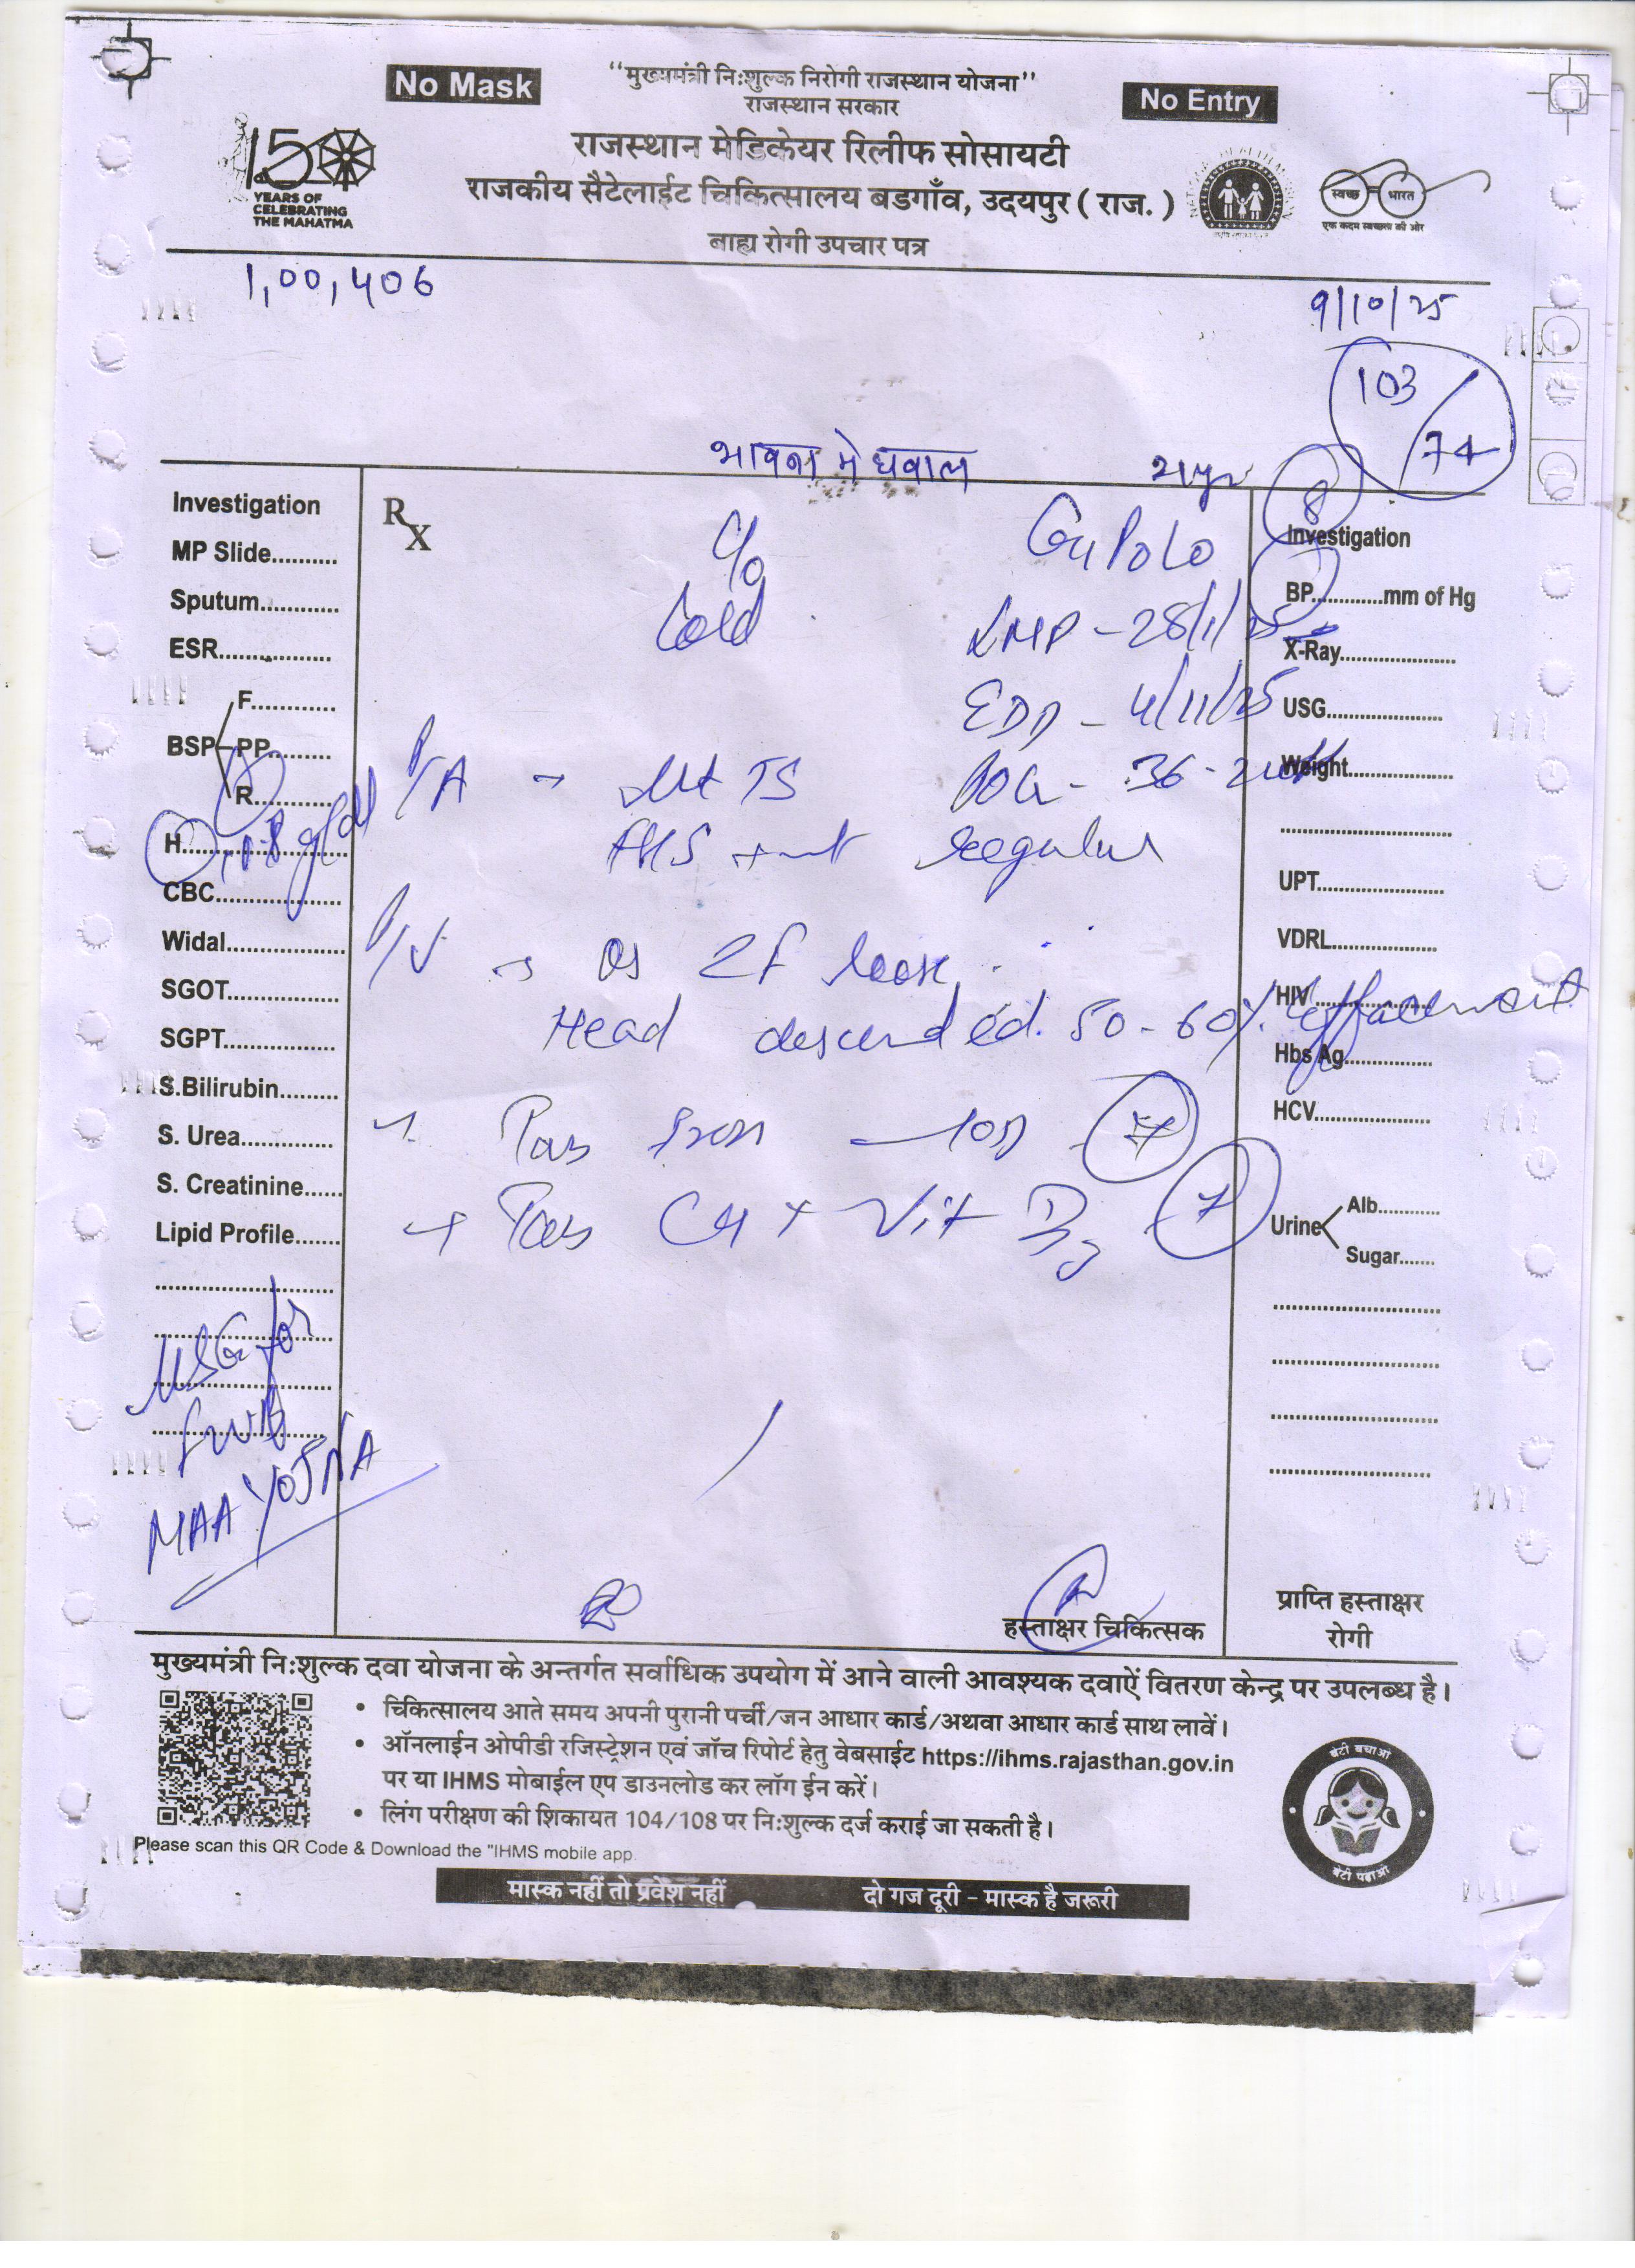 No Mask
"मुख्यमंत्री निःशुल्क निरोगी राजस्थान योजना"
राजस्थान सरकार
No Entry
राजस्थान मेडिकेयर रिलीफ सोसायटी
राजकीय सैटेलाईट चिकित्सालय बडगाँव, उदयपुर ( राज. )
बाह्य रोगी उपचार पत्र
150
YEARS OF
CELEBRATING
THE MAHATMA
स्वच्छ भारत
एक कदम स्वच्छता की ओर
1,00,406
9/10/25
103/74
भावना मेघवाल
Investigation
MP Slide............
Sputum............
ESR.................
BSP F............
PP.........
R............
H..................
CBC..................
Widal.................
SGOT................
SGPT.................
S.Bilirubin.........
S. Urea.............
S. Creatinine......
Lipid Profile.......
USG for
FWB
MAA YOJNA
Rx
C/o
Cold
LMP - 28/1/25
EDD - 4/11/25
P/A → Ut TS
POG - 36-2
FHS regular
P/V → Os 2F loose
Head descended. 50-60% effacement
Tab Iron - 1OD 7
Tab Cal + Vit D3 7
8
Investigation
BP............mm of Hg
X-Ray....................
USG....................
Weight..................
UPT......................
VDRL..................
HIV ..................
Hbs Ag...............
HCV....................
Urine Alb...........
Sugar.......
हस्ताक्षर चिकित्सक
प्राप्ति हस्ताक्षर
रोगी
मुख्यमंत्री निःशुल्क दवा योजना के अन्तर्गत सर्वाधिक उपयोग में आने वाली आवश्यक दवाऐं वितरण केन्द्र पर उपलब्ध है।
• चिकित्सालय आते समय अपनी पुरानी पर्ची/जन आधार कार्ड/अथवा आधार कार्ड साथ लावें।
• ऑनलाईन ओपीडी रजिस्ट्रेशन एवं जाँच रिपोर्ट हेतु वेबसाईट https://ihms.rajasthan.gov.in
पर या IHMS मोबाईल एप डाउनलोड कर लॉग ईन करें।
• लिंग परीक्षण की शिकायत 104/108 पर निःशुल्क दर्ज कराई जा सकती है।
Please scan this QR Code & Download the "IHMS mobile app
बेटी बचाओ
बेटी पढ़ाओ
मास्क नहीं तो प्रवेश नहीं दो गज दूरी - मास्क है जरूरी